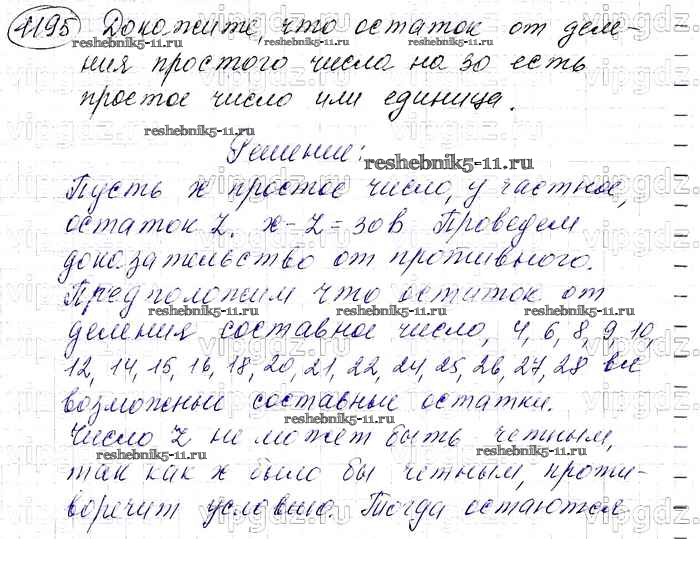 1195 Докажите, что остаток от деле-
reshebnik5-11.ru reshebnik5-11.ru
ния простого числа на 30 есть
простое число или единица.
reshebnik5-11.ru
Решение:
reshebnik5-11.ru
Пусть x простое число, y частное,
остаток z. x-z=30в Проведем
доказательство от противного.
Предположим что остаток от
reshebnik5-11.ru reshebnik5-11.ru
деления составное число, 4, 6, 8, 9, 10,
12, 14, 15, 16, 18, 20, 21, 22, 24, 25, 26, 27, 28 все
возможные составные остатки.
reshebnik5-11.ru
Число z не может быть четным,
reshebnik5-11.ru reshebnik5-11.ru
так как x было бы четным, проти-
воречит условию. Тогда остаются